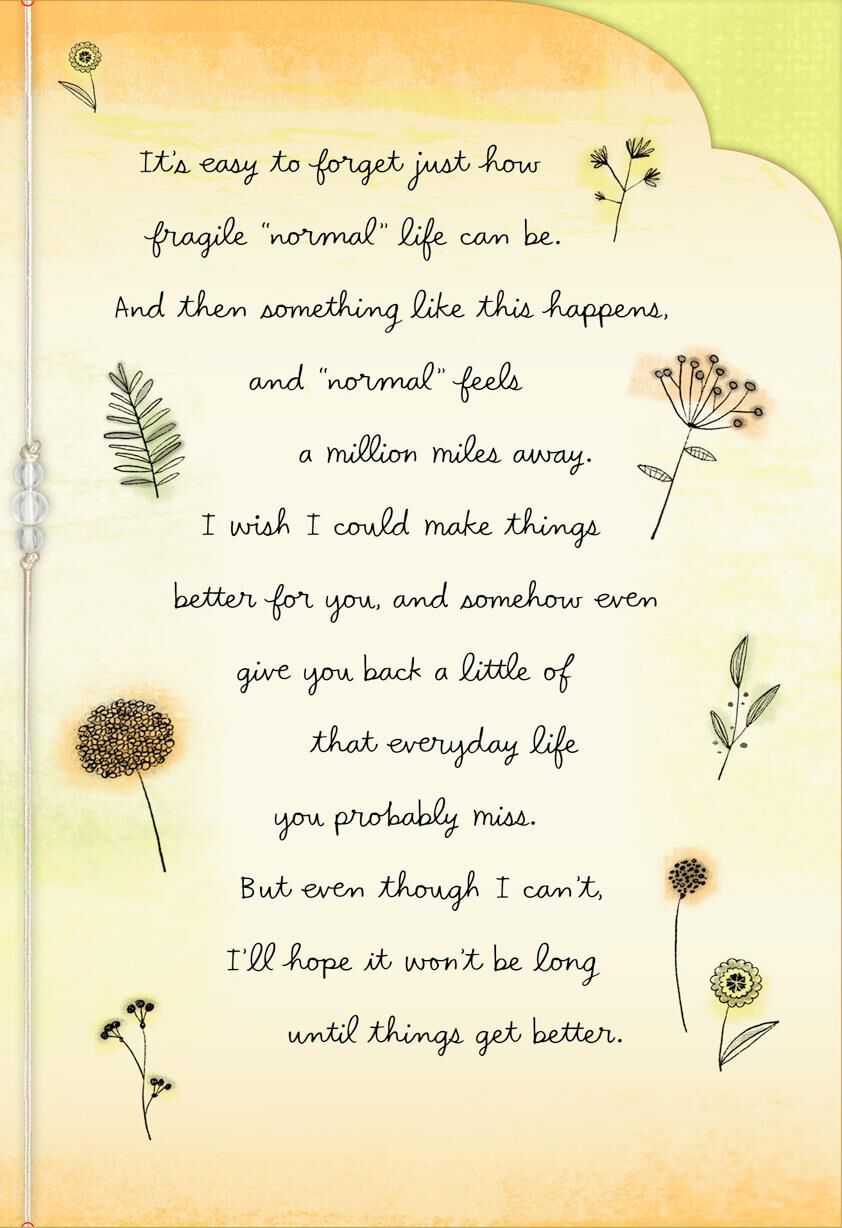 It's easy to forget just how
fragile “normal” life can be.
And then something like this happens,
and “normal” feels
a million miles away.
I wish I could make things
better for you, and somehow even
give you back a little of
that everyday life
you probably miss.
But even though I can't,
I'll hope it won't be long
until things get better.